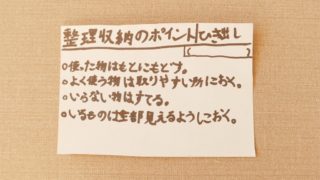 整理収納のポイント ひき出し
( )
○使った物はもとにもどす。
○よく使う物は取りやすい所におく。
○いらない物はすてる。
○いるものは全部見えるようにしておく。